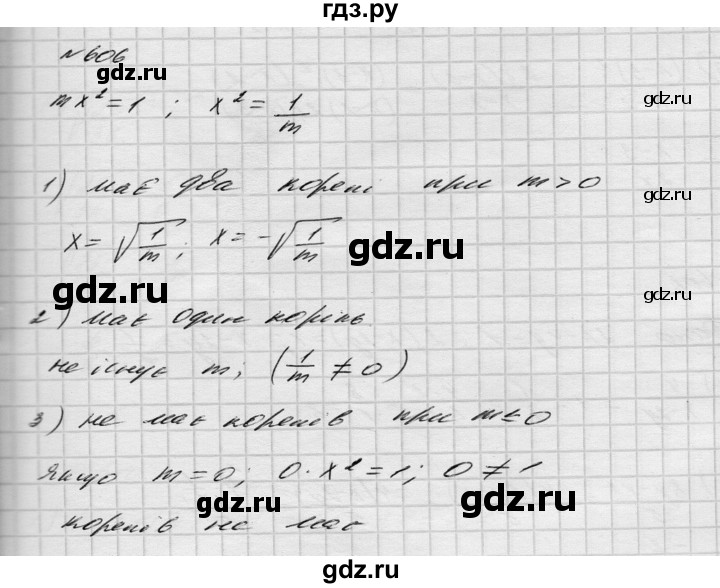 гдз.ру
№606
gdz.ru
mx² = 1 ; x² = 1/m
gdz.ru
1) має два корені при m > 0
gdz.ru
x = √(1/m); x = -√(1/m)
gdz.ru
gdz.ru
gdz.ru
2) має один корінь
не існує m; (1/m ≠ 0)
3) не має коренів при m ≤ 0
якщо m = 0; 0 · x² = 1; 0 ≠ 1
gdz.ru
gdz.ru
коренів не має
гдз.ру